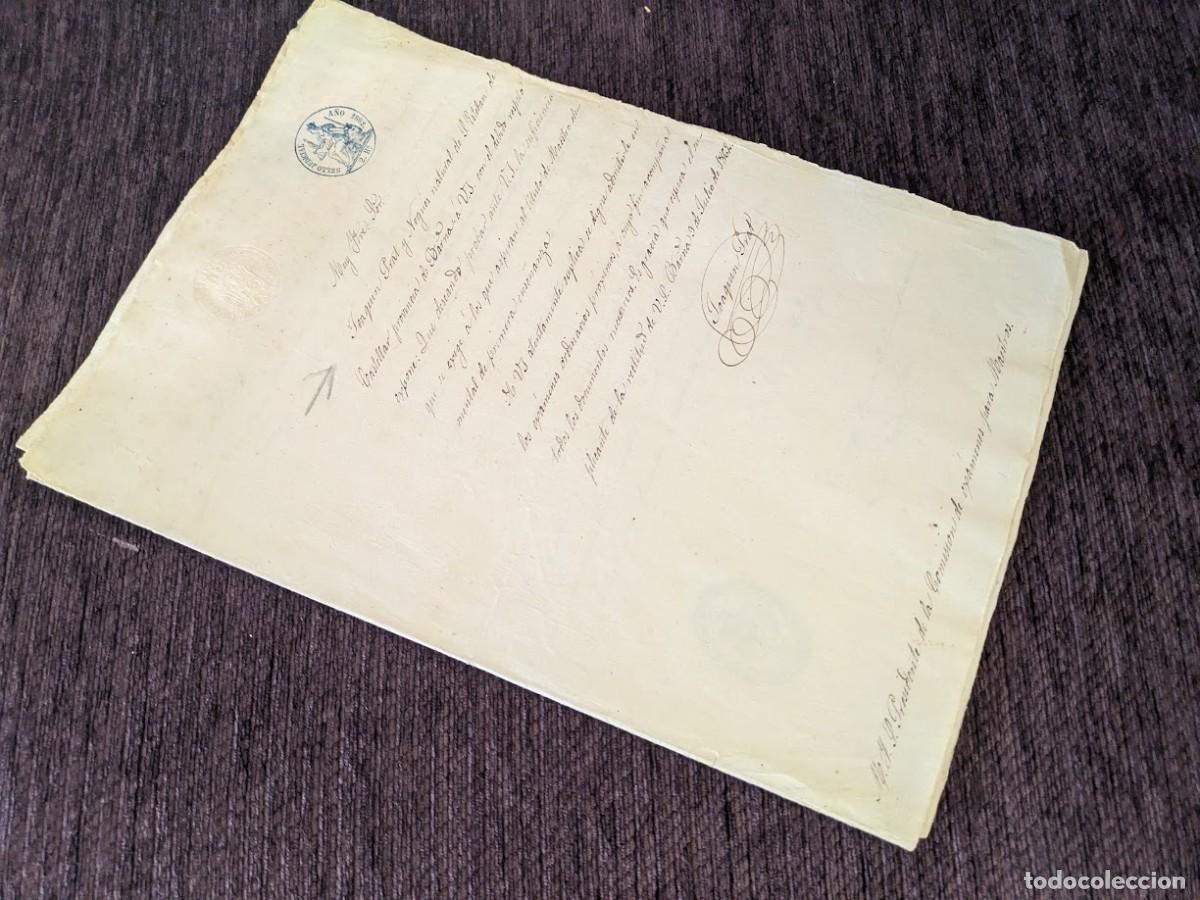 AÑO 1862
SELLO JUDICIAL
Muy Ilre. Sor.
Joaquin Prat y Noguer natural de S. Esteban de
Castellar provincia de Barna. a V.S. con el debido respeto
expone: Que deseando probar ante V.S. la suficiencia
que se exige á los que aspiran al titulo de Maestro ele
mental de primera enseñanza
A V.S. atentamente suplica se digne admitirle en
los exámenes ordinarios proximos á cuyo fin acompaña
todos los documentos necesarios. Es gracia que espera el su
plicante de la rectitud de V.S. Barna. 9 de Julio de 1862
Joaquin Prat
M. I. S. Presidente de la Comision de exámenes para Maestros.
todocoleccion